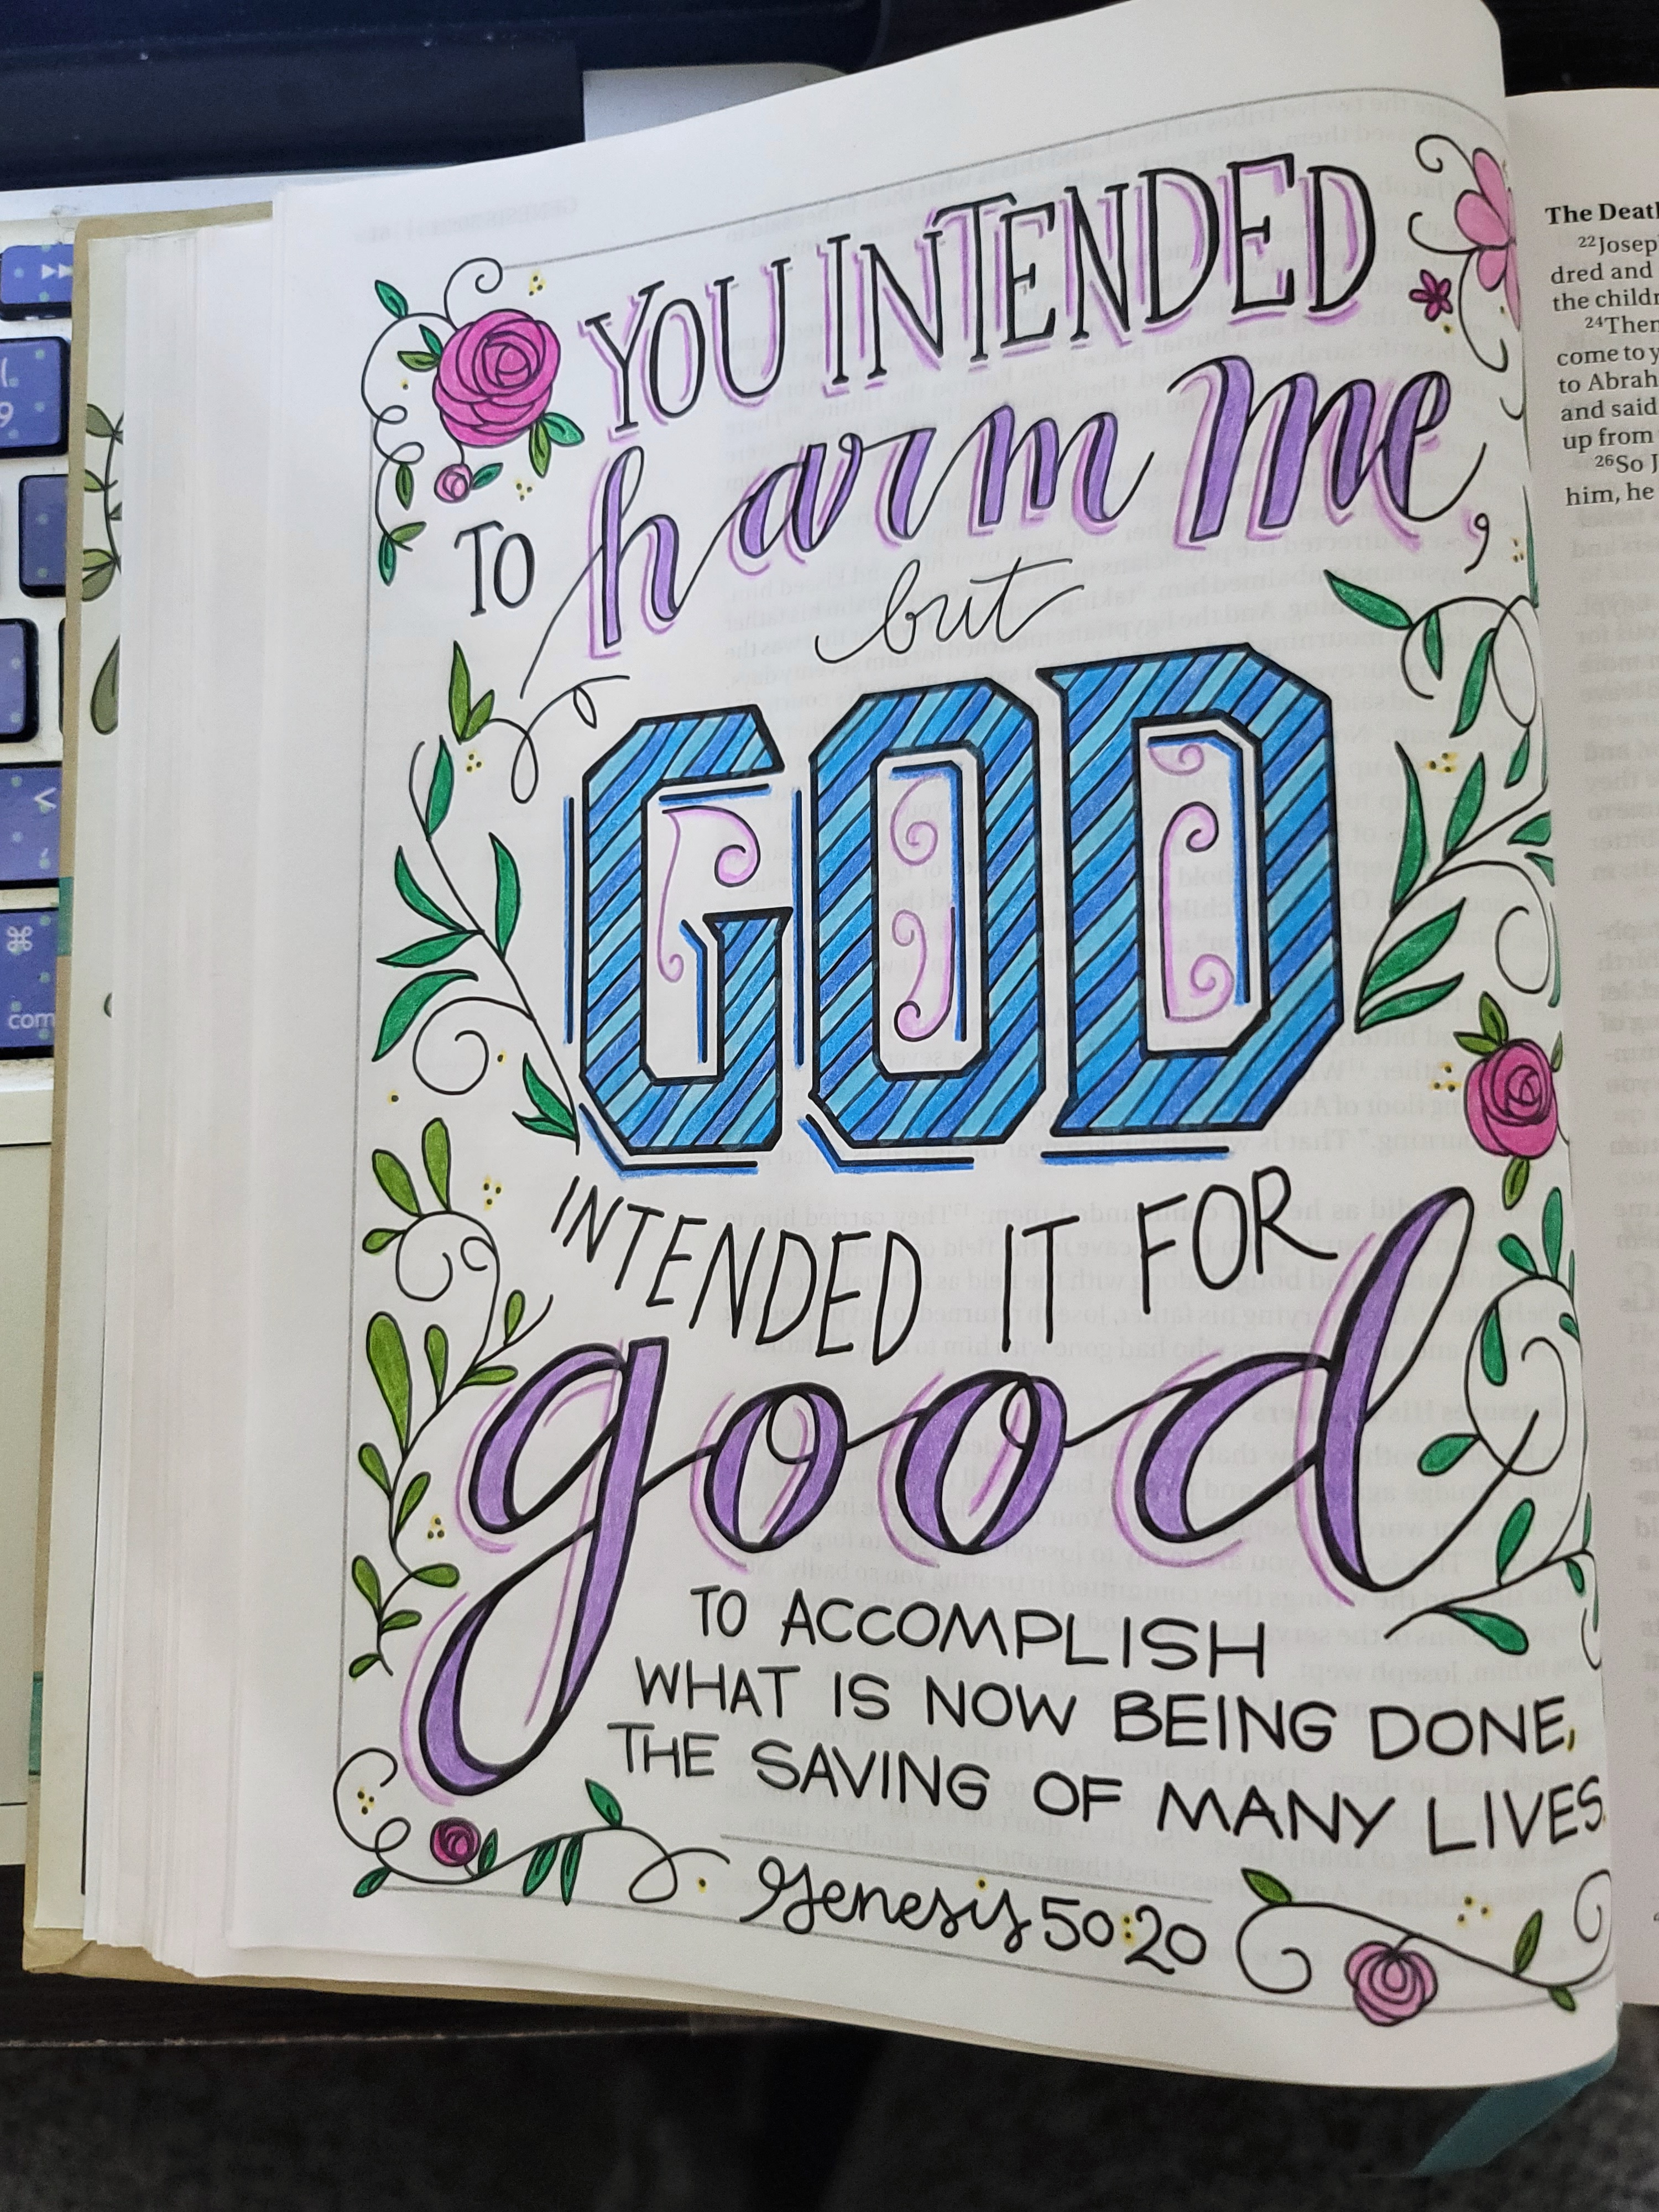 YOU INTENDED
TO harm me,
but
GOD
INTENDED IT FOR
good
TO ACCOMPLISH
WHAT IS NOW BEING DONE,
THE SAVING OF MANY LIVES.
Genesis 50:20
The Death
22Joseph
dred and
the childr
24Then
come to y
to Abrah
and said
up from
26So J
him, he
(
9
<
,
⌘
com